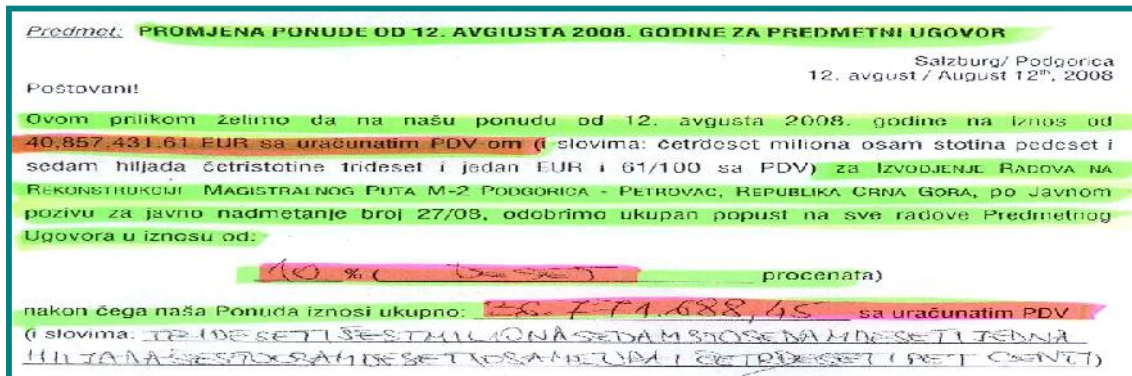 Predmet: PROMJENA PONUDE OD 12. AVGIUSTA 2008. GODINE ZA PREDMETNI UGOVOR
Salzburg/ Podgorica
12. avgust / August 12th, 2008
Poštovani!
Ovom prilikom želimo da na našu ponudu od 12. avgusta 2008. godine na iznos od
40,857.431.61 EUR sa uračunatim PDV-om (i slovima: četrdeset miliona osam stotina pedeset i
sedam hiljada četristotine trideset i jedan EUR i 61/100 sa PDV) za IZVODJENJE RADOVA NA
REKONSTRUKCIJI MAGISTRALNOG PUTA M-2 PODGORICA - PETROVAC, REPUBLIKA CRNA GORA, po Javnom
pozivu za javno nadmetanje broj 27/08, odobrimo ukupan popust na sve radove Predmetnog
Ugovora u iznosu od:
10 % ( DESET procenata)
nakon čega naša Ponuda iznosi ukupno: 36.771.688,45 sa uračunatim PDV
(i slovima: TRIDESET I ŠEST MILIONA SEDAMSTO SEDAMDESET I JEDNA
HILJADA ŠESTO OSAMDESET I OSAM EURA I ČETRDESET I PET CENTI)